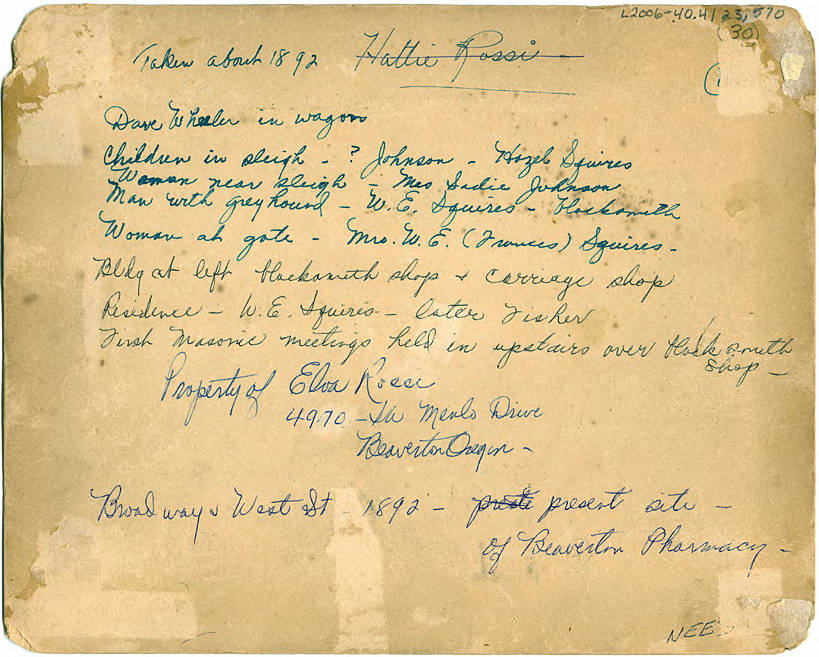 L2006-40.41 23,570
(30)
Taken about 1892 Hattie Rossi
Dave Wheeler in wagon
Children in sleigh - ? Johnson - Hazel Squires
Woman near sleigh - Mrs Sadie Johnson
Man with greyhound - W.E. Squires - blacksmith
Woman at gate - Mrs. W.E. (Frances) Squires -
Bldg at left blacksmith shop & carriage shop
Residence - W.E. Squires - later Fisher
First Masonic meetings held in upstairs over blacksmith
shop -
Property of Elva Rossi
4970 - SW Menlo Drive
Beaverton Oregon -
Broadway & West St - 1892 - present site -
of Beaverton Pharmacy -
NEE